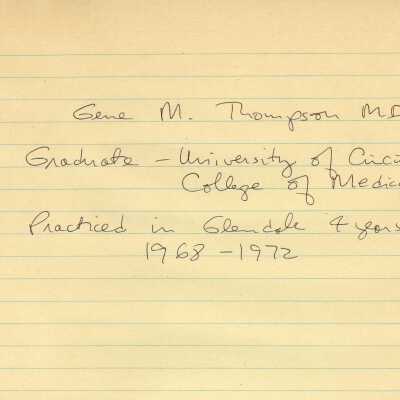 Gene M. Thompson MD
Graduate - University of Cinci
College of Medic
Practiced in Glendale 4 years
1968 - 1972